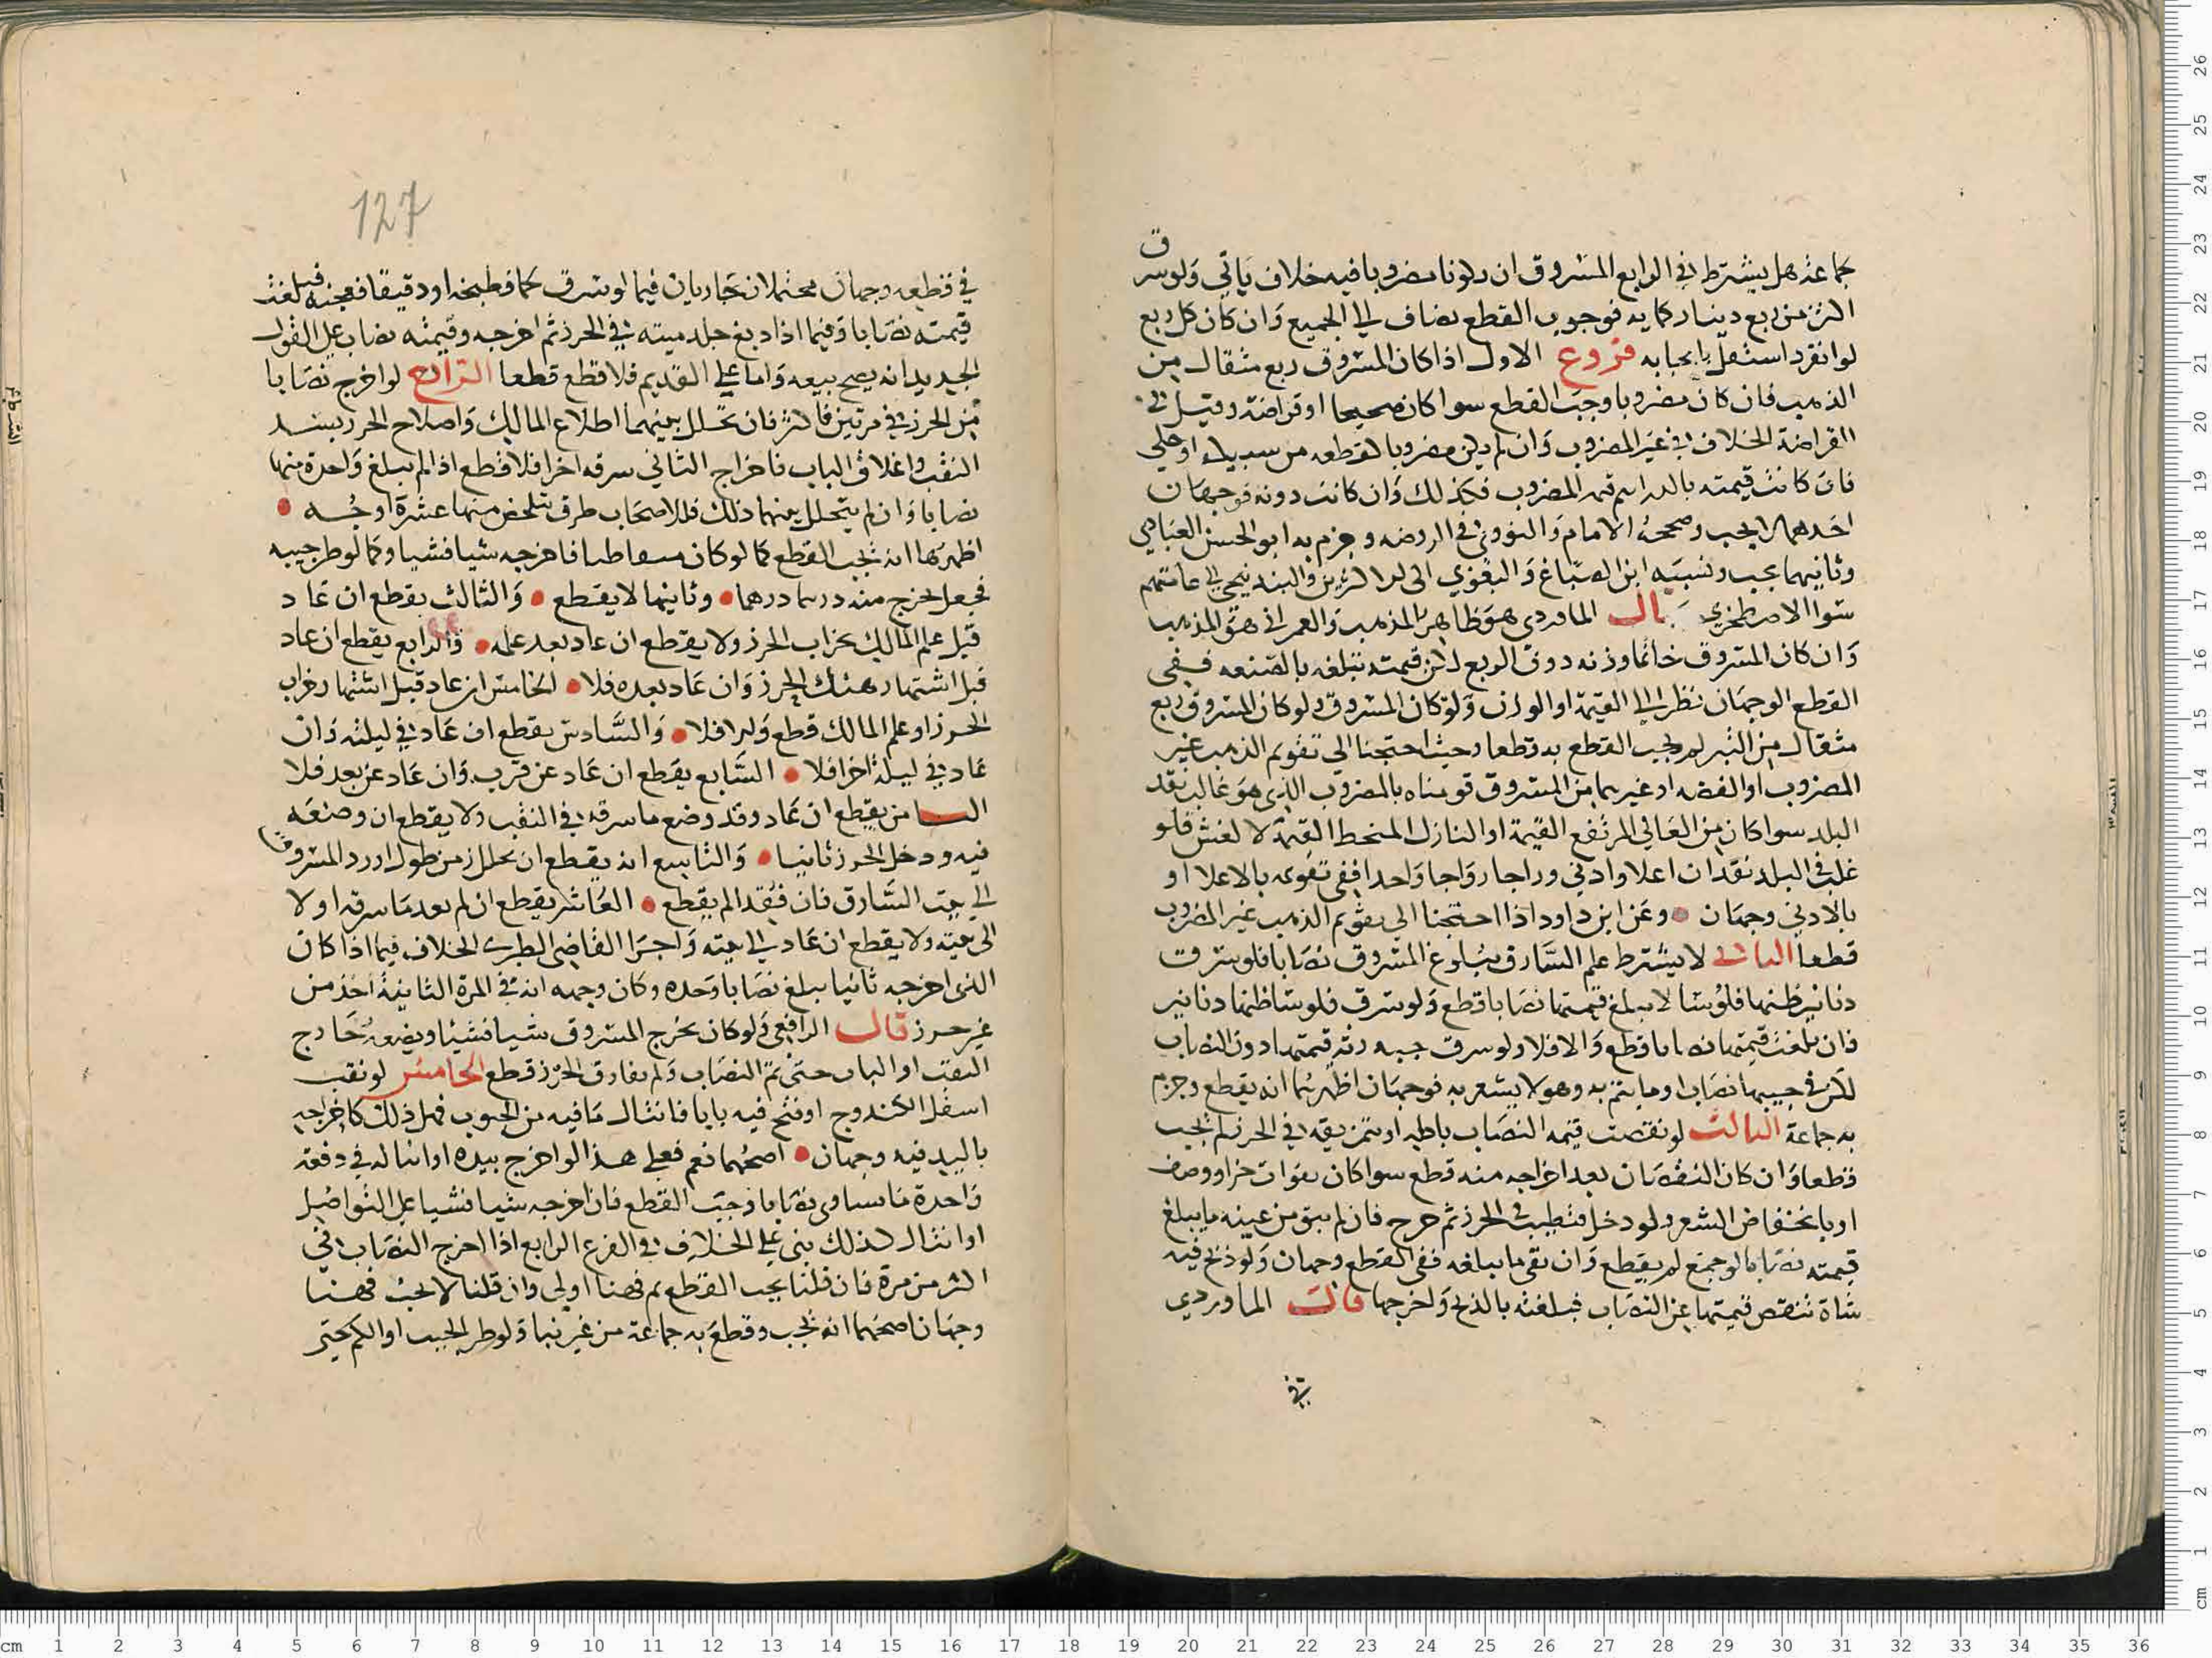 جماعة هل يشترط في الرابع المسروق ان يكونا مضروبا فيه خلاف ياتي ولو سرق
اكثر من ربع دينار كمايه فوجوب القطع يضاف الي الجميع وان كان كل ربع
لو انفرد استقل بايجابه فروع الاول اذا كان المسروق ربع مثقال من
الذهب فان كان مضروبا وجب القطع سوا كان صحيحا او قراضة وقيل في
القراضة الخلاف في غير المضروب وان لم يكن مضروبا كقطعه من سبيكه او حلي
فان كانت قيمته بالدراهم قيمة المضروب فكذلك وان كانت دونه فوجهان
احدهما لا يجب وصححه الامام والنووي في الروضه وجزم به ابو الحسن العبادي
وثانيهما يجب ونسبه ابن الصباغ والبغوي الى الاكثرين والبندنيجي الي عامتهم
سوا الاصطخري قال الماوردي هو ظاهر المذهب والعمراني هو المذهب
وان كان المسروق خاتما وزنه دون الربع لكن قيمته تبلغه بالصنعه ففي
القطع الوجهان نظرا الي القيمة او الوزن ولو كان المسروق ولو كان المسروق ربع
مثقال من التبر لم يجب القطع به قطعا وحيث احتجنا الي تقويم الذهب غير
المضروب او الفضه او غيرهما من المسروق قومناه بالمضروب الذي هو غالب نقد
البلد سوا كان من العالي المرتفع القيمة او النازل المنحط القيمة لا لغش فلو
غلب في البلد نقدان اعلا وادني وراجا رواجا واحدا ففي تقويمه بالاعلا او
بالادني وجهان وعن ابن داود اذا احتجنا الي تقويم الذهب غير المضروب
قطعا الثاني لا يشترط علم السارق ببلوغ المسروق نصابا فلو سرق
دنانير ظنها فلوسا لا يبلغ قيمتها نصابا قطع ولو سرق فلوسا ظنها دنانير
فان بلغت قيمتها نصابا قطع والا فلا ولو سرق جبه رثه قيمتها دون النصاب
لكن في جيبها نصاب او ما يتم به وهو لا يشعر به فوجهان اظهرهما انه يقطع وجزم
به جماعة الثالث لو نقصت قيمه النصاب باكله او تمزيقه في الحرز لم يجب
قطعا وان كان النقصان بعد اخراجه منه قطع سوا كان بفوات جزا ووصف
او بانخفاض السعر ولو دخل فتطيب في الحرز ثم خرج فان لم يبق من عينه ما يبلغ
قيمته نصابا لو جمع لم يقطع وان بقي ما يبلغه ففي القطع وجهان ولو ذبح فيه
شاة تنقص قيمتها عن النصاب فبلغته بالذبح واخرجها قال الماوردي
في
127
في قطعه وجهان محتملان جاريان فيما لو سرق لحما فطبخه او دقيقا فعجنه فبلغت
قيمته نصابا وفيما اذا دبغ جلد ميته في الحرز ثم اخرجه وقيمته نصاب على القول
الجديد انه يصح بيعه واما علي القديم فلا قطع قطعا الرابع لو اخرج نصابا
من الحرز في مرتين فاكثر فان تخلل بينهما اطلاع المالك واصلاح الحرز بسد
النقب واغلاق الباب فاخراج الثاني سرقه اخرا فلا قطع اذا لم يبلغ واحدة منهما
نصابا وان لم يتخلل بينهما ذلك فللاصحاب طرق تلخص منها عشرة اوجه
اظهرها انه يجب القطع كما لو كان فاخرجه شيا فشيا وكما لو طر جيبه
فجعل يخرج منه درهما درهما وثانيها لا يقطع والثالث يقطع ان عاد
قبل علم المالك بخراب الحرز ولا يقطع ان عاد بعد علمه والرابع يقطع ان عاد
قبل اشتهار هتك الحرز وان عاد بعده فلا الخامس ان عاد قبل اشتهار خراب
الحرز او علم المالك قطع والا فلا والسادس يقطع ان عاد في ليلته وان
عاد في ليلة اخرا فلا السابع يقطع ان عاد عن قرب وان عاد عن بعد فلا
الثامن يقطع ان عاد وقد وضع ما سرقه في النقب ولا يقطع ان وضعه
فيه ودخل الحرز ثانيا والتاسع انه يقطع ان تخلل زمن طول او رد المسروق
الي بيت السارق فان فقدا لم يقطع العاشر يقطع ان لم يعد ما سرقه اولا
الى بيته ولا يقطع ان عاد الي بيته واجرا القاضي الطبري الخلاف فيما اذا كان
الذي اخرجه ثانيا يبلغ نصابا وحده وكان وجهه انه في المرة الثانية اخذ من
غير حرز قال الرافعي ولو كان يخرج المسروق شيا فشيا ويضعه خارج
النقب او الباب حتى تم النصاب ولم يفارق الحرز قطع الخامس لو نقب
اسفل الكندوج او فتح فيه بابا فانثال ما فيه من الحبوب فهل ذلك كاخراجه
باليد فيه وجهان اصحهما نعم فعلي هذا لو اخرج بيده او انثاله في دفعة
واحدة ما يساوي نصابا وجب القطع فان اخرجه شيا فشيا على التواصل
او انثال كذلك بني علي الخلاف في الفرع الرابع اذا اخرج النصاب في
اكثر من مرة فان قلنا يجب القطع ثم فهنا اولي وان قلنا لا يجب فهنا
وجهان اصحهما انه يجب وقطع به جماعة من غير بنا ولو طر الجيب او الكم حتى